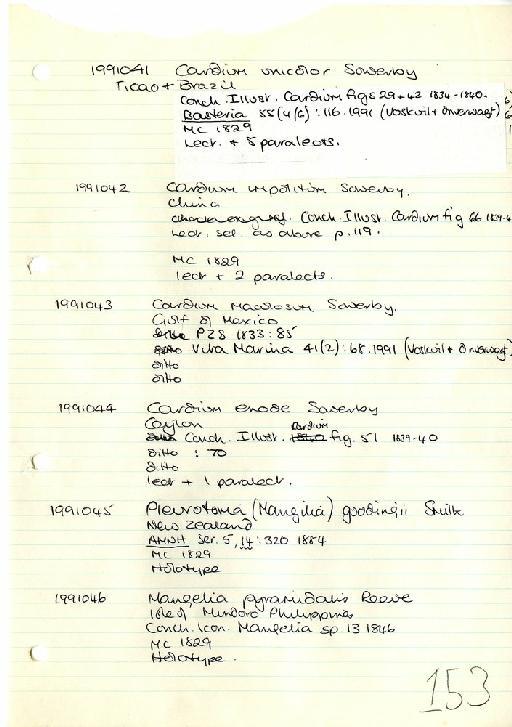 1991041 Cardium unicolor Sowerby
Ticao + Brazil
Conch. Illust. Cardium figs 29 + 42 1834-1840.
Basteria 55 (4/6): 116. 1991 (Voskuil + Onverwagt)
MC 1829
Lect. + 8 paralects.
1991042 Cardium impolitum Sowerby.
China
Conch. Illust. Cardium fig 66 1839-4
Lect. sel. as above p. 119.
MC 1829
lect + 2 paralects.
1991043 Cardium maculosum Sowerby.
Gulf of Mexico
PZS 1833: 85
Vita Marina 41(2): 68. 1991 (Voskuil + Onverwagt)
ditto
ditto
1991044 Cardium enode Sowerby
Ceylon
Conch. Illust. Cardium fig. 51 1839-40
ditto : 70
ditto
lect + 1 paralect.
1991045 Pleurotoma (Mangilia) goodingii Smith
New Zealand
ANNH Ser. 5, 14: 320 1884
MC 1829
Holotype
1991046 Mangelia pyramidalis Reeve
Isle of Mindoro Philippines
Conch. Icon. Mangelia sp 13 1846
MC 1829
Holotype.
153